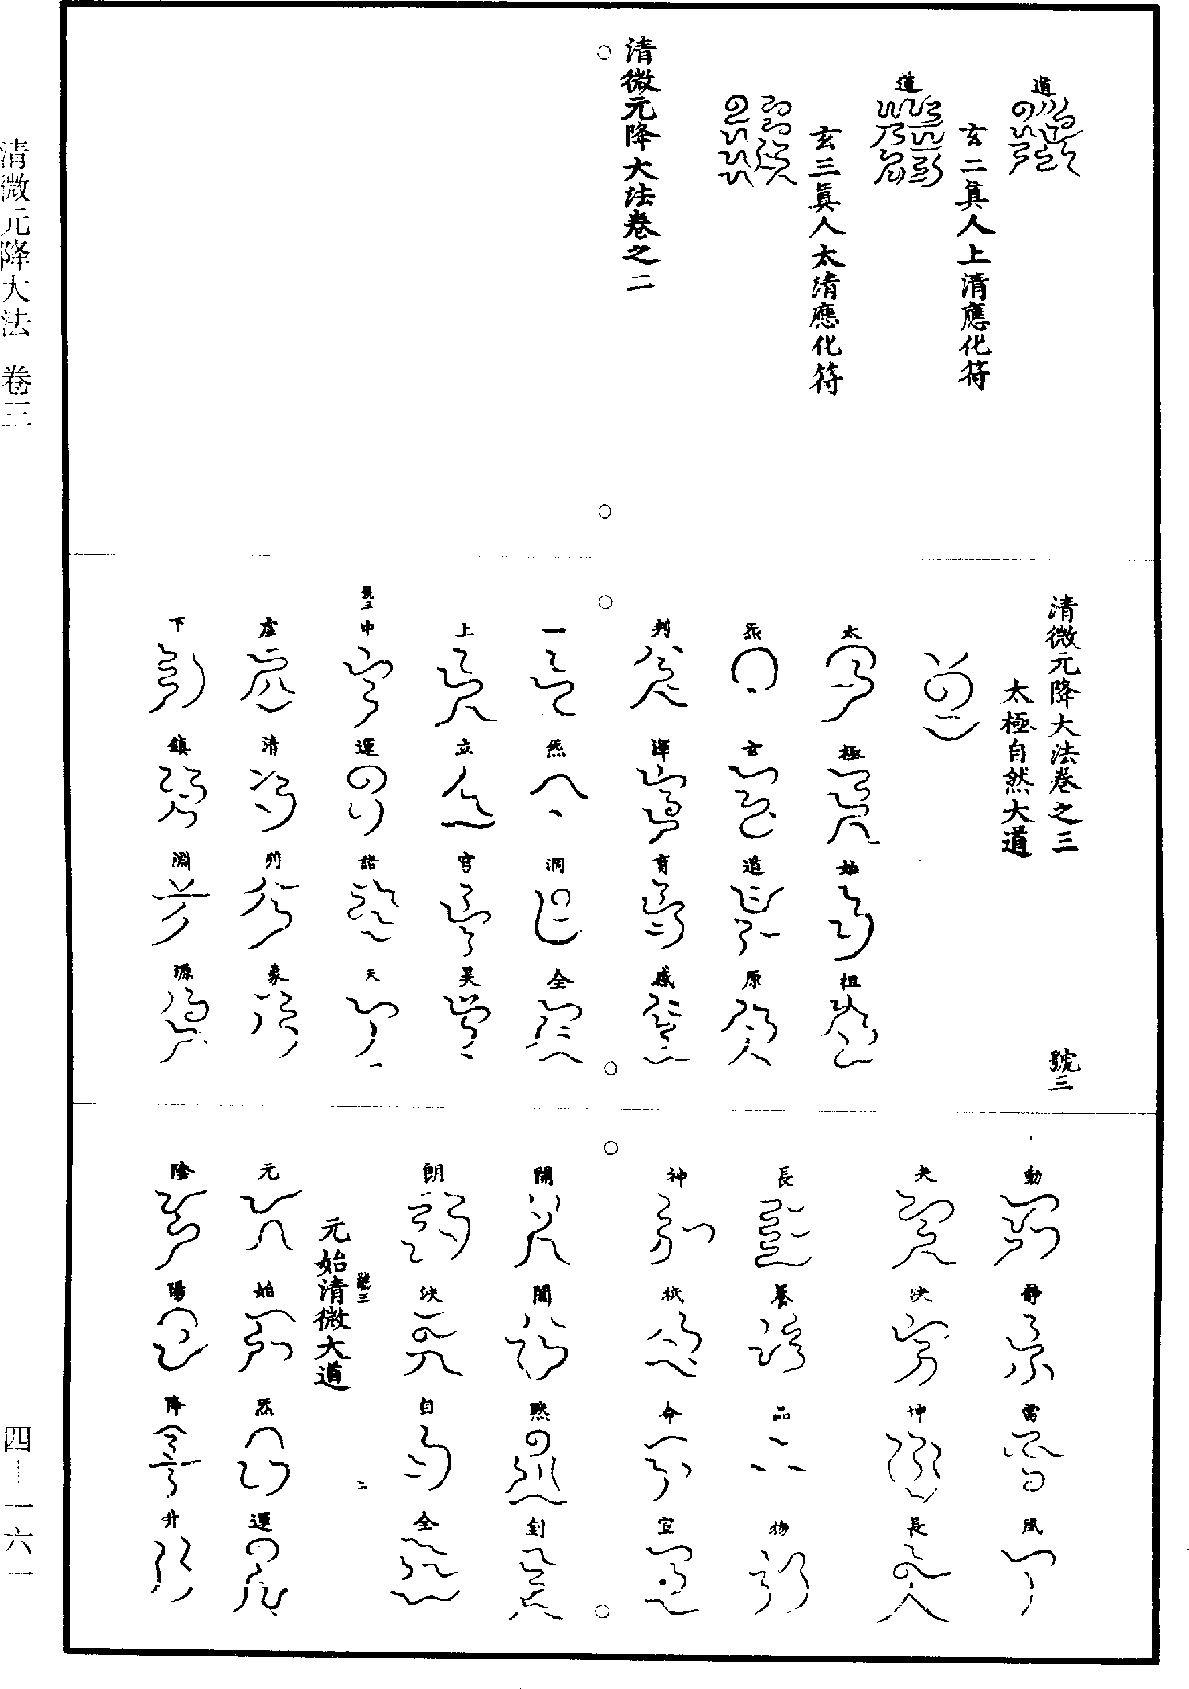 道
玄二真人上清應化符
道
玄三真人太清應化符
清微元降大法卷之二
清微元降大法卷之三 號三
太極自然大道
太極始祖
炁玄道原
判渾育感
一炁洞全
上立宮昊
號三
中運諸天
虛清列象
下鎮淵源
動靜雷風
夫決坤長
長養品物
神祇命宜
開闔默劊
朗泱自全
元始清微大道 號三
元始炁運
陰陽降升
清微元降大法 卷三
四—一六一